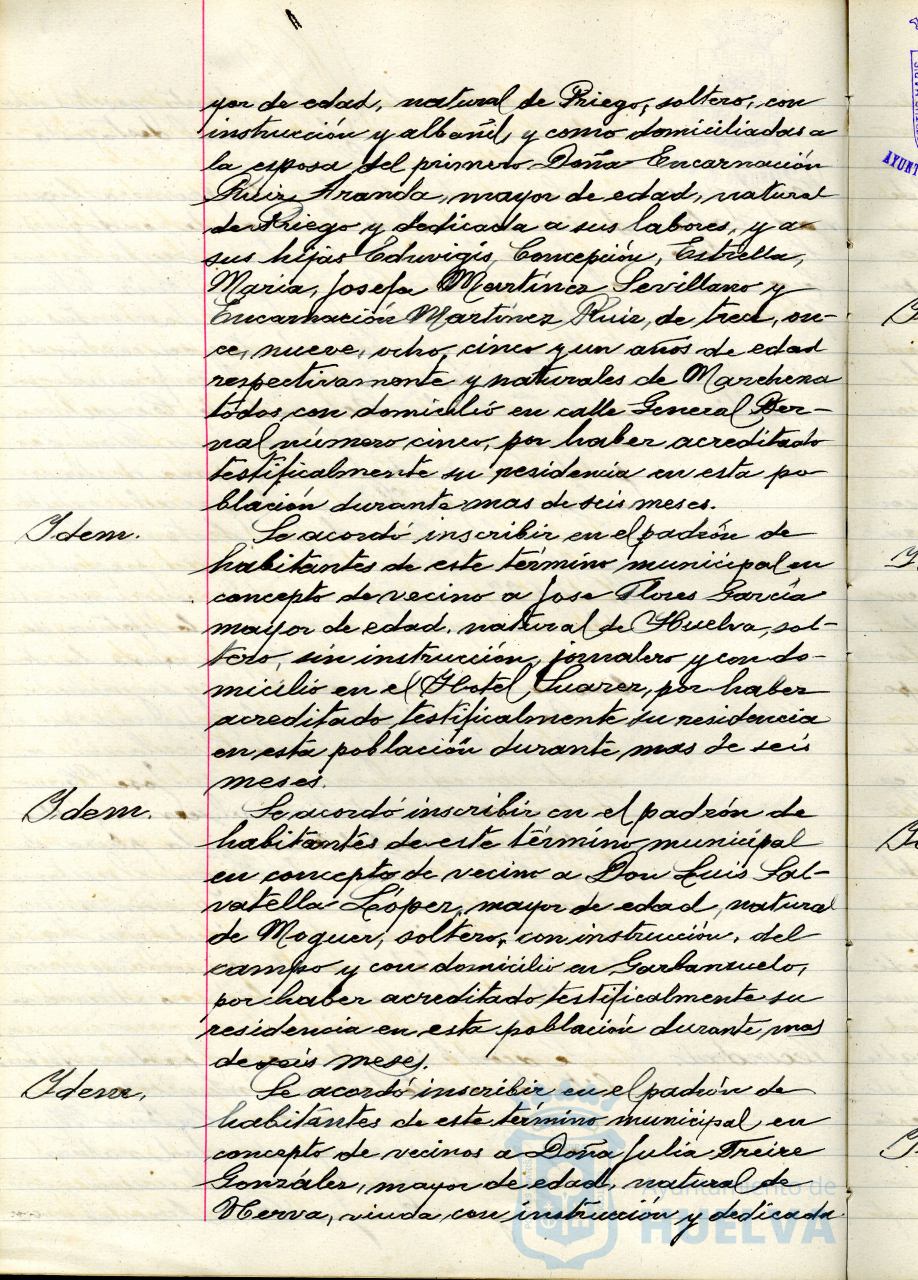 yor de edad, natural de Priego, soltero, con
instrucción y albañil y como domiciliadas a
la esposa del primero Doña Encarnación
Ruiz Aranda, mayor de edad, natural
de Priego y dedicada a sus labores, y a
sus hijas Eduvigis, Concepción, Estrella,
Maria, Josefa Martínez Sevillano y
Encarnación Martínez Ruiz, de trece, on-
ce, nueve, ocho, cinco y un años de edad
respectivamente y naturales de Marchena
todos con domicilio en calle General Ber-
nal número cinco, por haber acreditado
testificalmente su residencia en esta po-
blación durante mas de seis meses.
Idem. Se acordó inscribir en el padrón de
habitantes de este término municipal en
concepto de vecino a Jose Flores García
mayor de edad, natural de Huelva, sol-
tero, sin instrucción, jornalero y con do-
micilio en el Hotel Suarez, por haber
acreditado testificalmente su residencia
en esta población durante mas de seis
meses.
Idem. Se acordó inscribir en el padrón de
habitantes de este término municipal
en concepto de vecino a Don Luis Sal-
vatella López, mayor de edad, natural
de Moguer, soltero, con instrucción, del
campo y con domicilio en Garbanzuelo,
por haber acreditado testificalmente su
residencia en esta población durante mas
de seis meses.
Idem. Se acordó inscribir en el padrón de
habitantes de este término municipal en
concepto de vecinos a Doña Julia Freire
González, mayor de edad, natural de
Nerva, viuda, con instrucción y dedicada
Ayuntamiento de
HUELVA